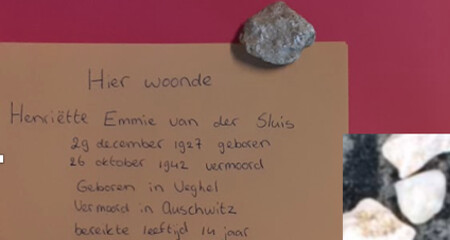 Hier woonde
Henriëtte Emmie van der Sluis
29 december 1927 geboren
26 oktober 1942 vermoord
Geboren in Veghel
Vermoord in Auschwitz
bereikte leeftijd 14 jaar